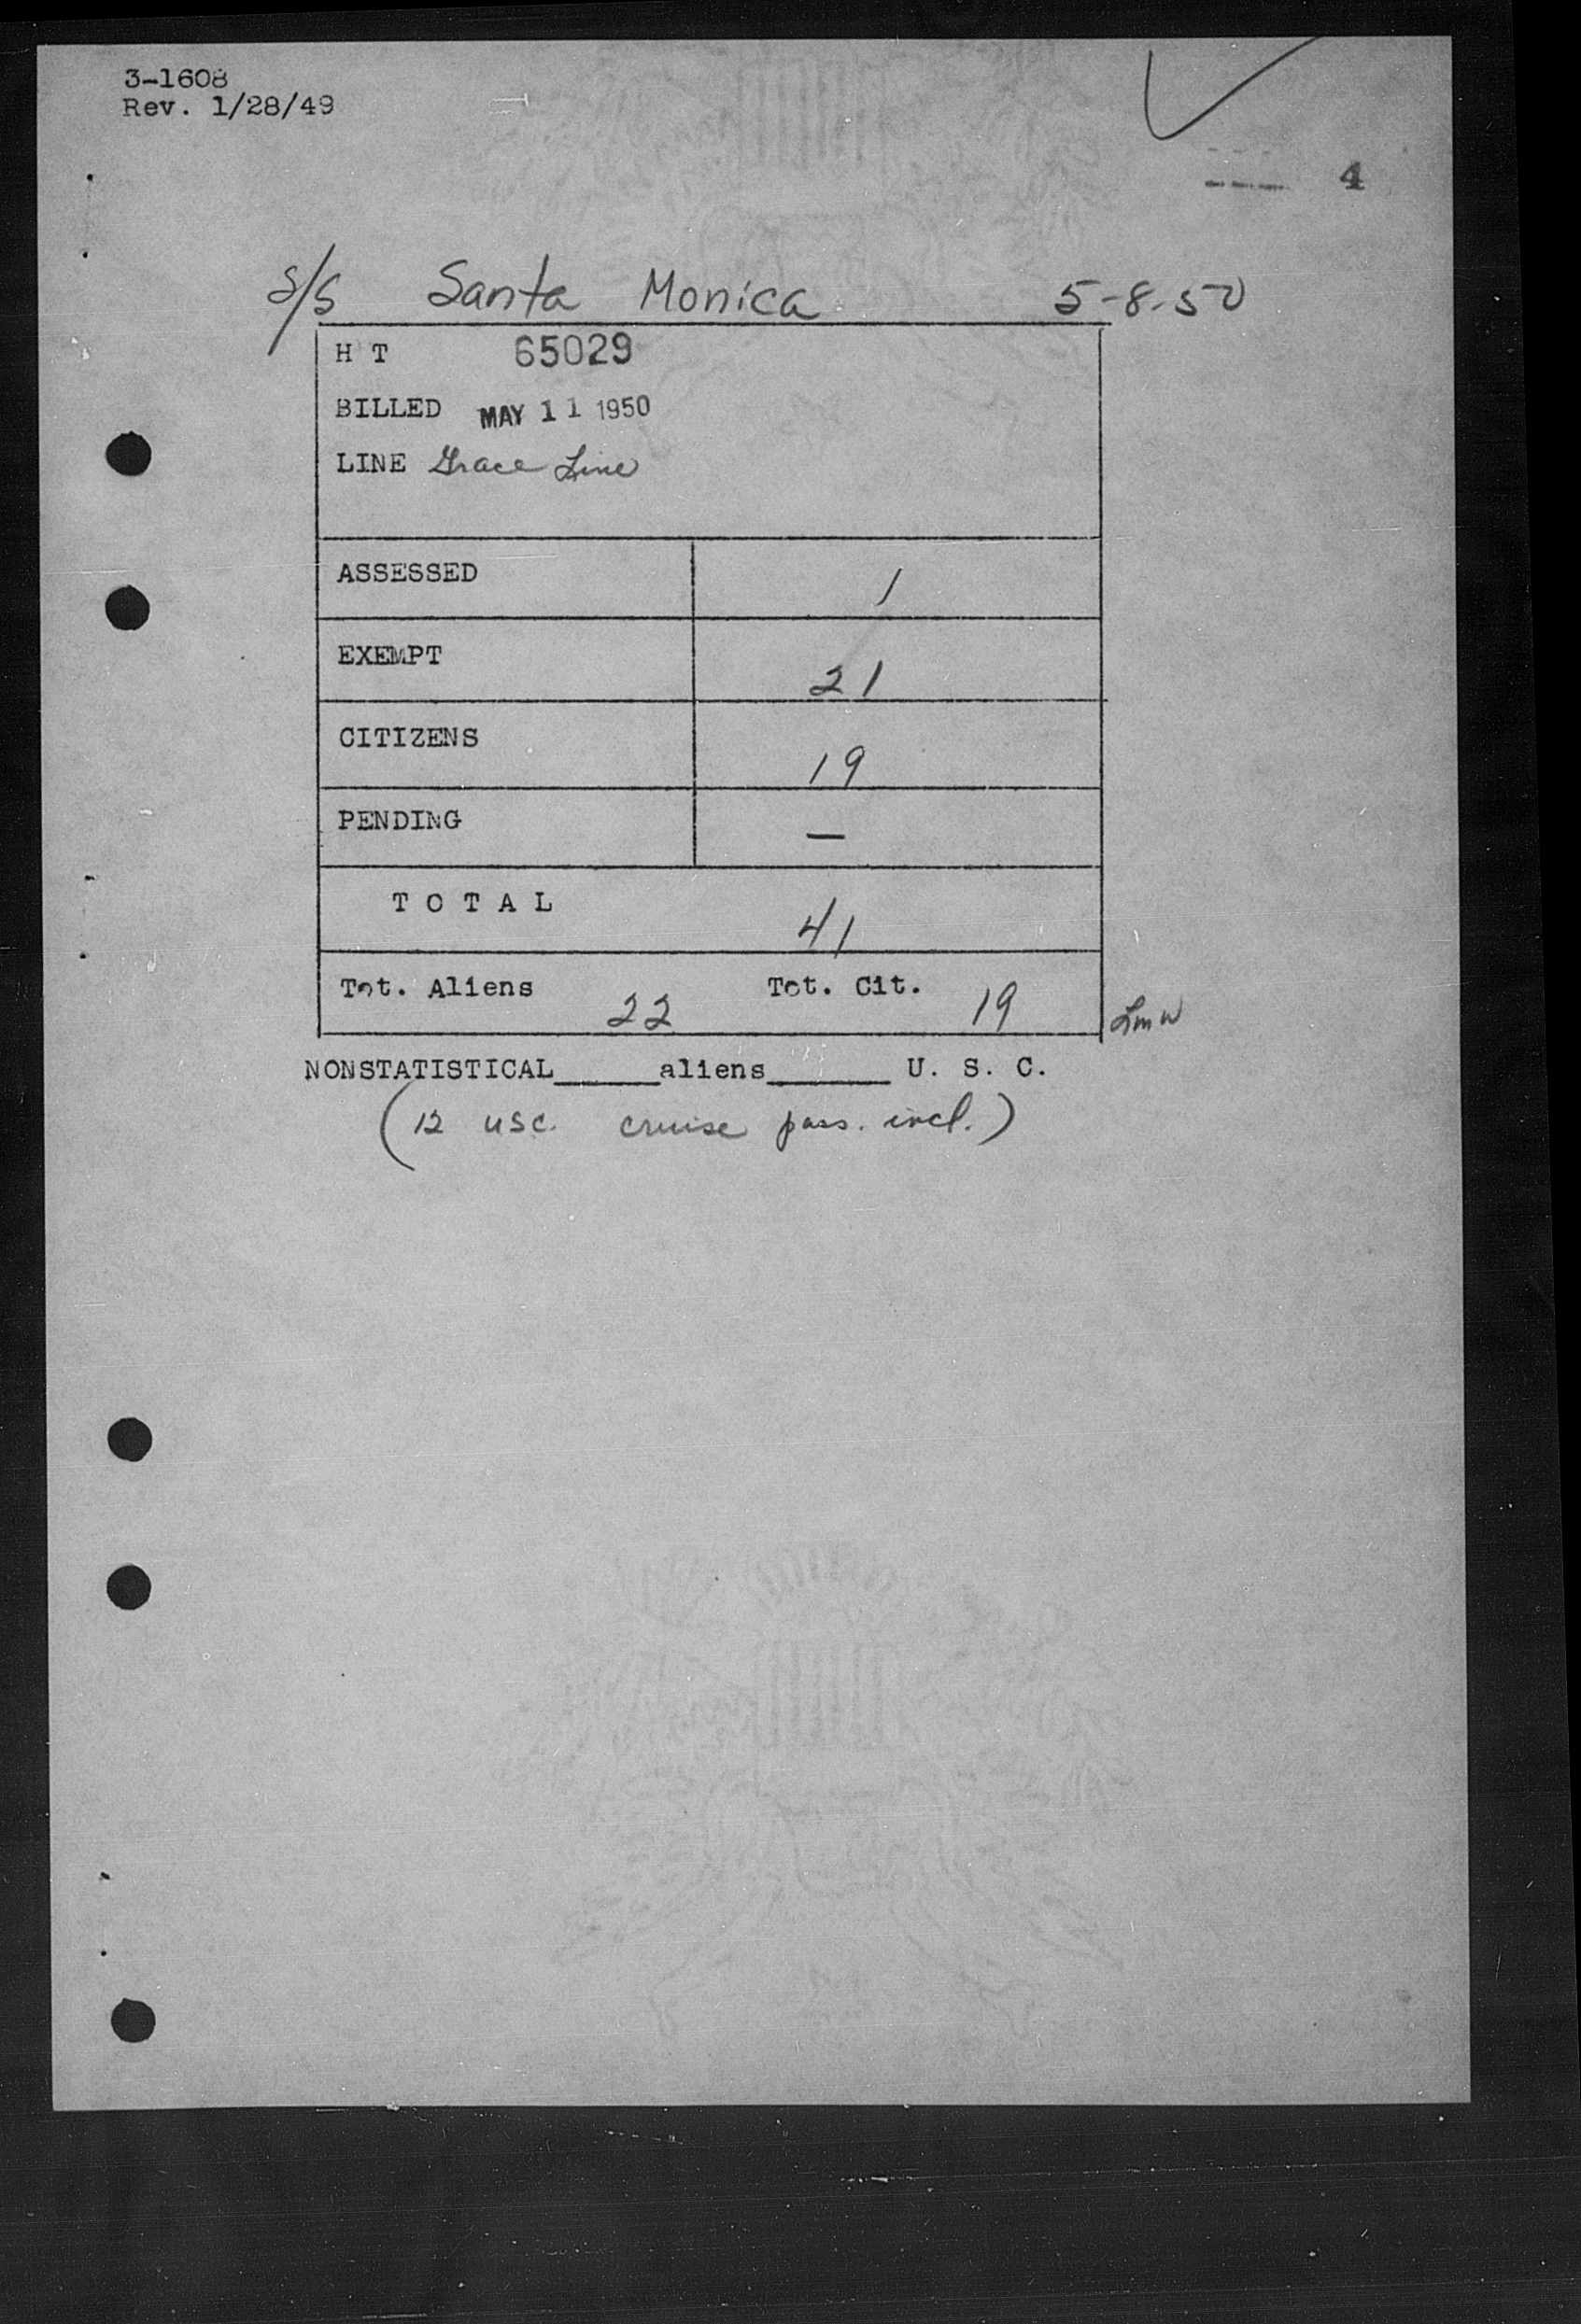 3-1608
Rev. 1/28/49
4
S/S Santa Monica 5-8-50
H T 65029
BILLED MAY 11 1950
LINE Grace Line
ASSESSED 1
EXEMPT 21
CITIZENS 19
PENDING —
T O T A L 41
Tot. Aliens 22 Tot. Cit. 19 Lmw
NONSTATISTICAL_____aliens______ U. S. C.
(12 usc. cruise pass. incl.)